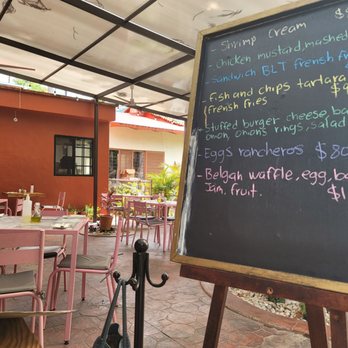 - Shrimp cream $
- chicken mustard, mashed
sandwich BLT frensh fr
- Fish and chips tartara
frensh fries $
- Stuffed burger cheese, ba
onion, onions rings, salad
- Eggs rancheros $80
- Belgah waffle, egg, ba
Jam, fruit. $1